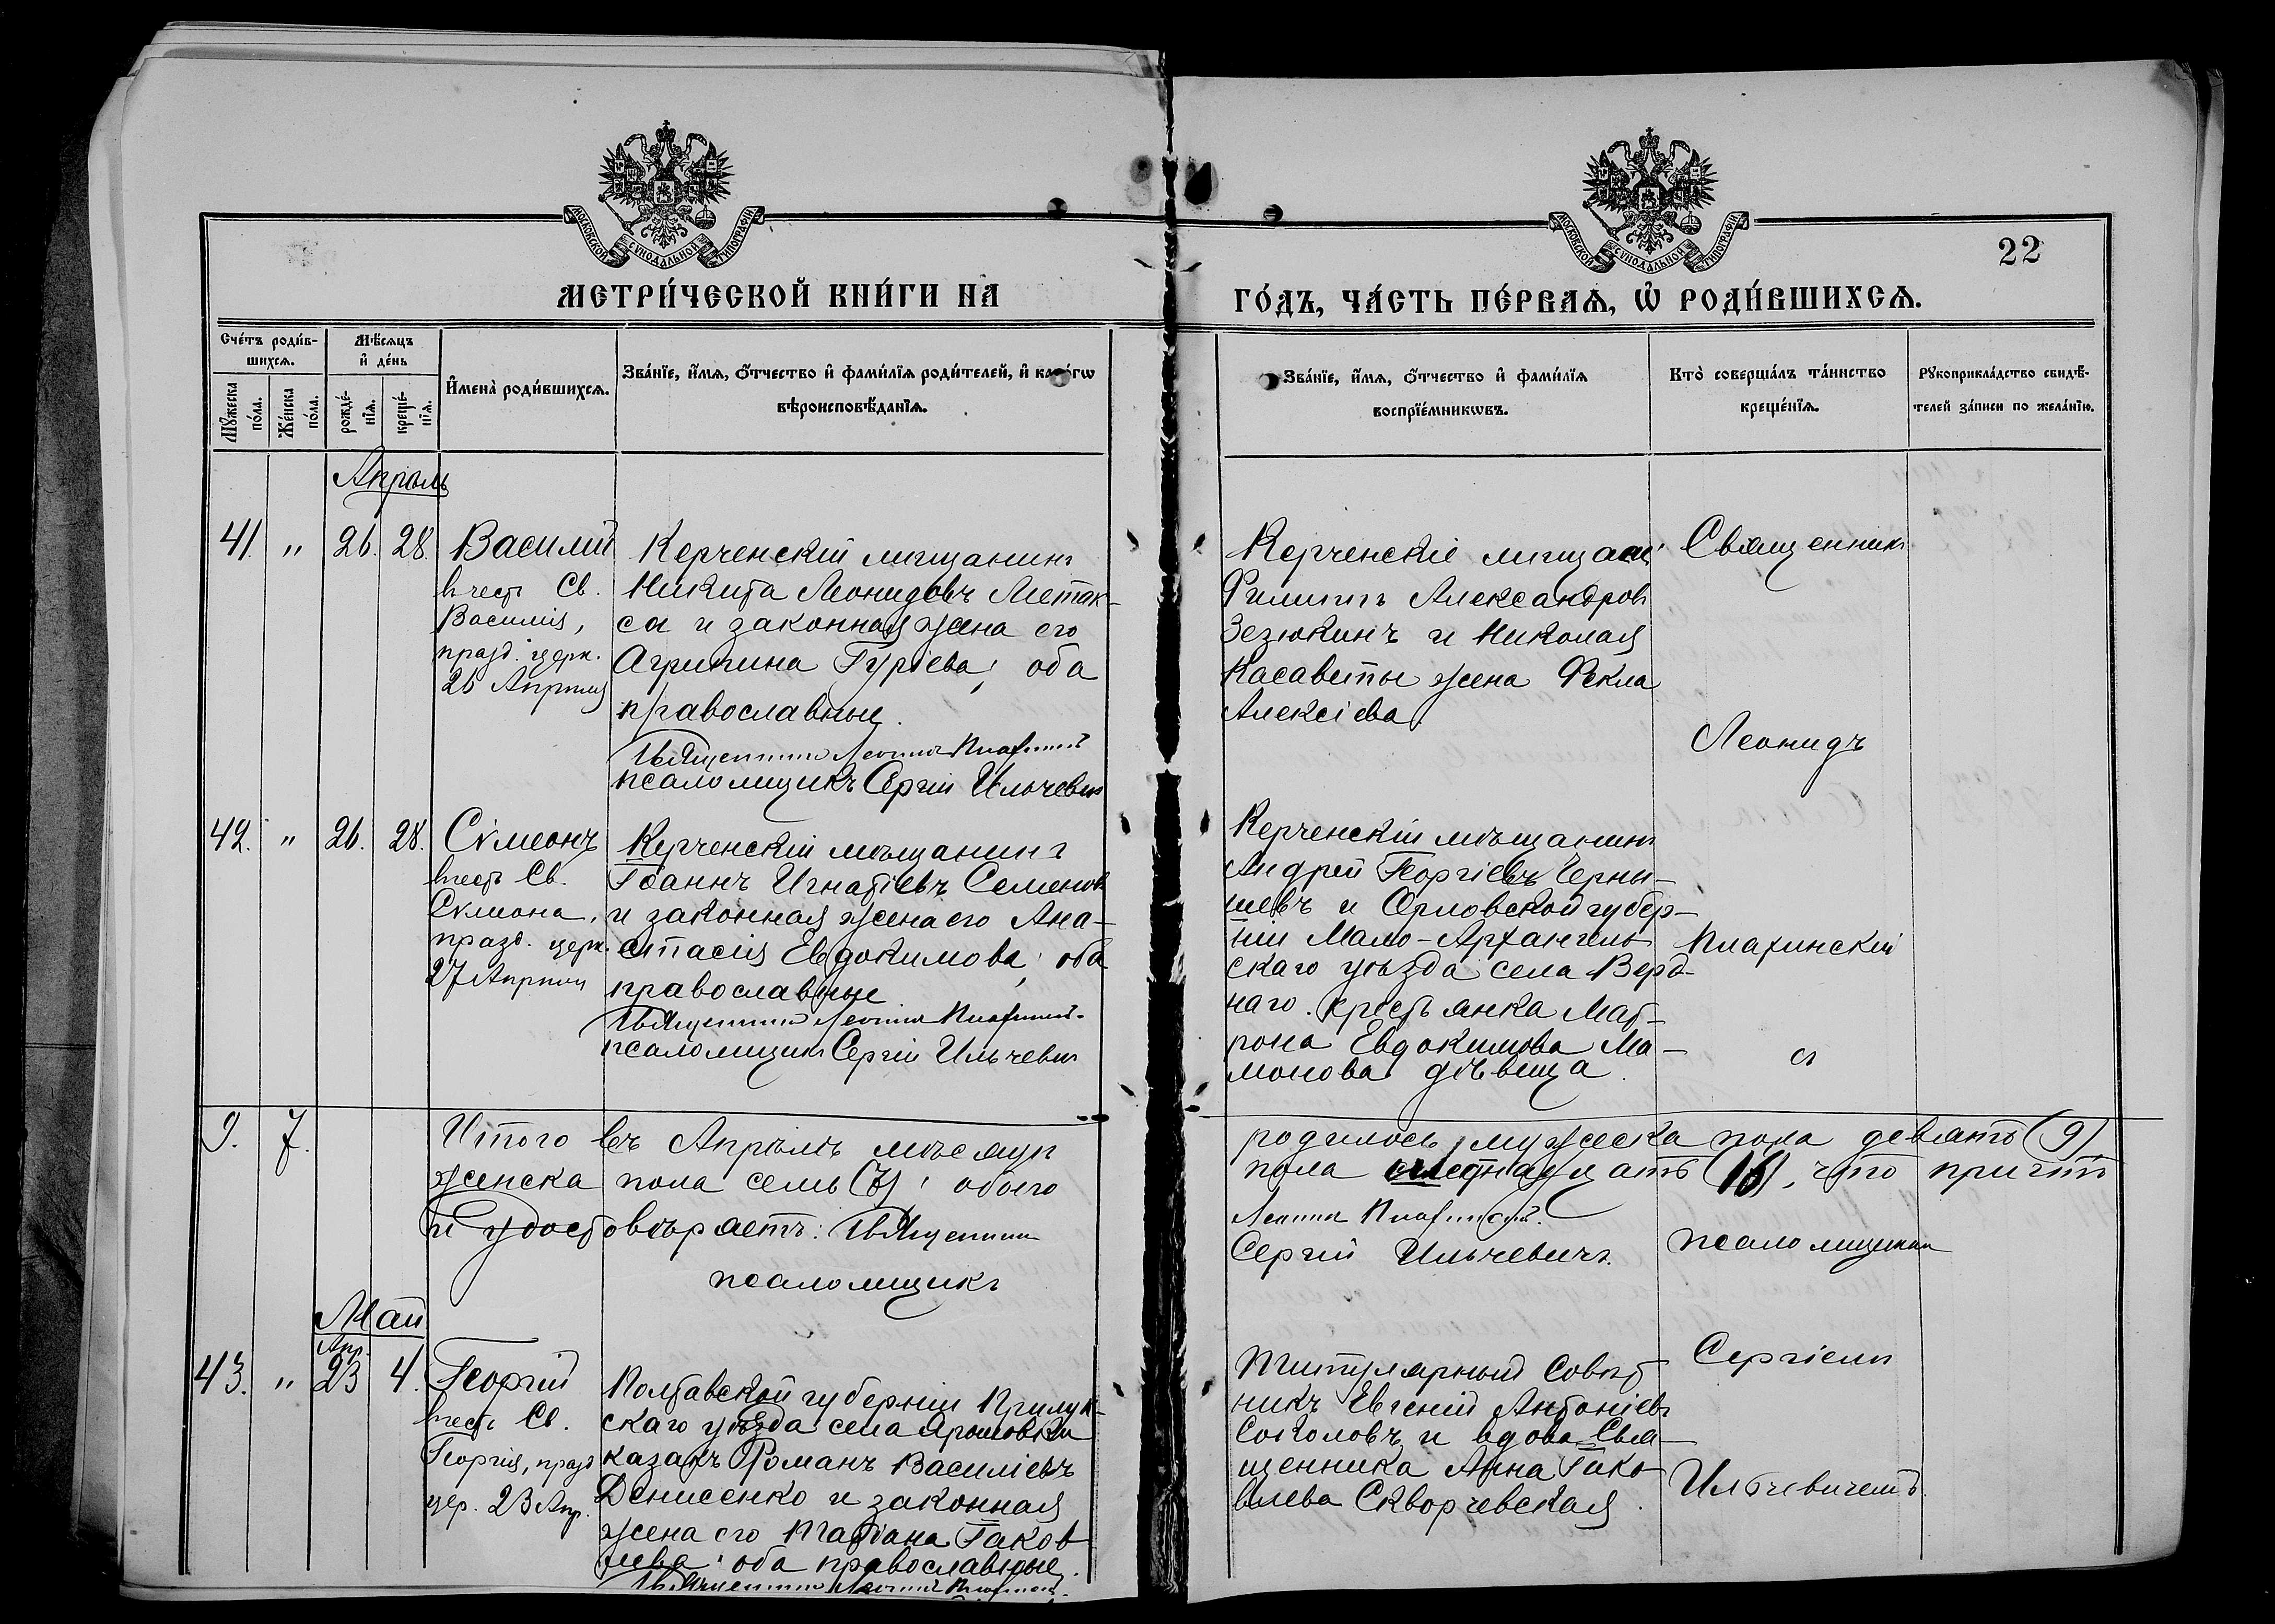 МОСКОВСКОЙ СѴНОДАЛЬНОЙ ТИПОГРАФІИ
МОСКОВСКОЙ СѴНОДАЛЬНОЙ ТИПОГРАФІИ
22
МЕТРИ́ЧЕСКОЙ КНИ́ГИ НА
ГО́ДЪ, ЧА́СТЬ ПЕ́РВАѦ, Ѡ҆ РОДИ́ВШИХСѦ.
Сче́тъ роди́в-
шихсѧ.
Мѣ́сѧцъ
и҆ де́нь
Мꙋ́жеска
по́ла.
Же́нска
по́ла.
рожде́-
нїѧ.
креще́-
нїѧ.
И҆мена̀ роди́вшихсѧ.
Зва́нїе, и҆́мѧ, ѻ҆́тчество и҆ фами́лїѧ роди́телей, и҆ како́гѡ
вѣроисповѣ́данїѧ.
Зва́нїе, и҆́мѧ, ѻ҆́тчество и҆ фами́лїѧ
воспрїе́мникѡвъ.
Кто̀ соверша́лъ та́инство
креще́нїѧ.
Рꙋкоприкла́дство свидѣ́-
телей за́писи по жела́нїю.
Апрѣль
41. " 26. 28. Василій
в честь Св.
Василія,
празд. церк.
26 Апрѣля
Керченскій мѣщанинъ
Никита Леонидовъ Метак-
са и законная жена его
Агрипина Гуріева; оба
православные.
Священникъ Леонидъ Пиахинскій
псаломщикъ Сергій Ильчевич
Керченскіе мѣщане:
Филиппъ Александровъ
Зезюкинъ и Николая
Касаветы жена Фекла
Алексіева
Священник
Леонидъ
42. " 26. 28. Сѵмеонъ
в честь Св.
Сѵмеона,
празд. церк.
27 Апрѣля
Керченскій мѣщанинъ
Іоаннъ Игнатіевъ Семенов
и законная жена его Ана-
стасія Евдокимова; оба
православные
Священникъ Леонидъ Пиахинскій
псаломщикъ Сергій Ильчевич
Керченскій мѣщанинъ
Андрей Георгіевъ Черны-
шевъ и Орловской губер-
ніи Мало-Архангель-
скаго уѣзда села Веро-
наго крестьянка Мат-
рона Евдокимова Ма-
монова дѣвица.
Пиахинскій
съ
9. 7.
Итого въ Апрѣлѣ мѣсяцѣ
женска пола семь (7), обоего
и удостовѣряетъ: Священникъ
псаломщикъ
родилось мужеска пола девять (9)
пола шестнадцать (16), что причтъ
Леонидъ Пиахинскій.
Сергій Ильчевичъ.
псаломщикомъ
Май
Апр.
43. " 23 4. Георгій
в честь Св.
Георгія, празд
цер. 23 Апр.
Полтавской губерніи Прилук-
скаго уѣзда села Ярошовки
казакъ Романъ Василіевъ
Денисенко и законная
жена его Татіана Іаков
лева; оба православные.
Священникъ Леонидъ Пиахинскій
Титулярный Совѣт
никъ Евгеній Антоніевъ
Соколовъ и вдова Свя-
щенника Анна Іако-
влева Скворчевская.
Сергіемъ
Ильчевичемъ.